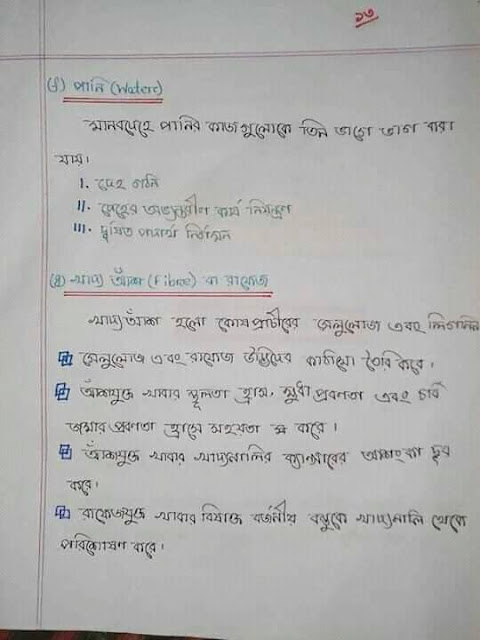 ১৩
(f) পানি (Water)
মানবদেহে পানির কাজগুলোকে তিন ভাগে ভাগ করা
যায়।
I. দেহ গঠন
II. দেহের অভ্যন্তরীণ কার্য নিয়ন্ত্রণ
III. দূষিত পদার্থ নির্গমন
(g) খাদ্য আঁশ (Fibre) বা রাফেজ
খাদ্যআঁশ হলো কোষপ্রাচীরের সেলুলোজ এবং লিগনিন
সেলুলোজ এবং রাফেজ উদ্ভিদের কাঠামো তৈরি করে।
আঁশযুক্ত খাবার স্থূলতা হ্রাস, ক্ষুধা প্রবণতা এবং চর্বি
জমার প্রবণতা হ্রাসে সহয়তা করে।
আঁশযুক্ত খাবার খাদ্যনালির ক্যান্সারের আশংকা দূর
করে।
রাফেজযুক্ত খাবার বিষাক্ত বর্জনীয় বস্তুকে খাদ্যনালি থেকে
পরিশোষণ করে।